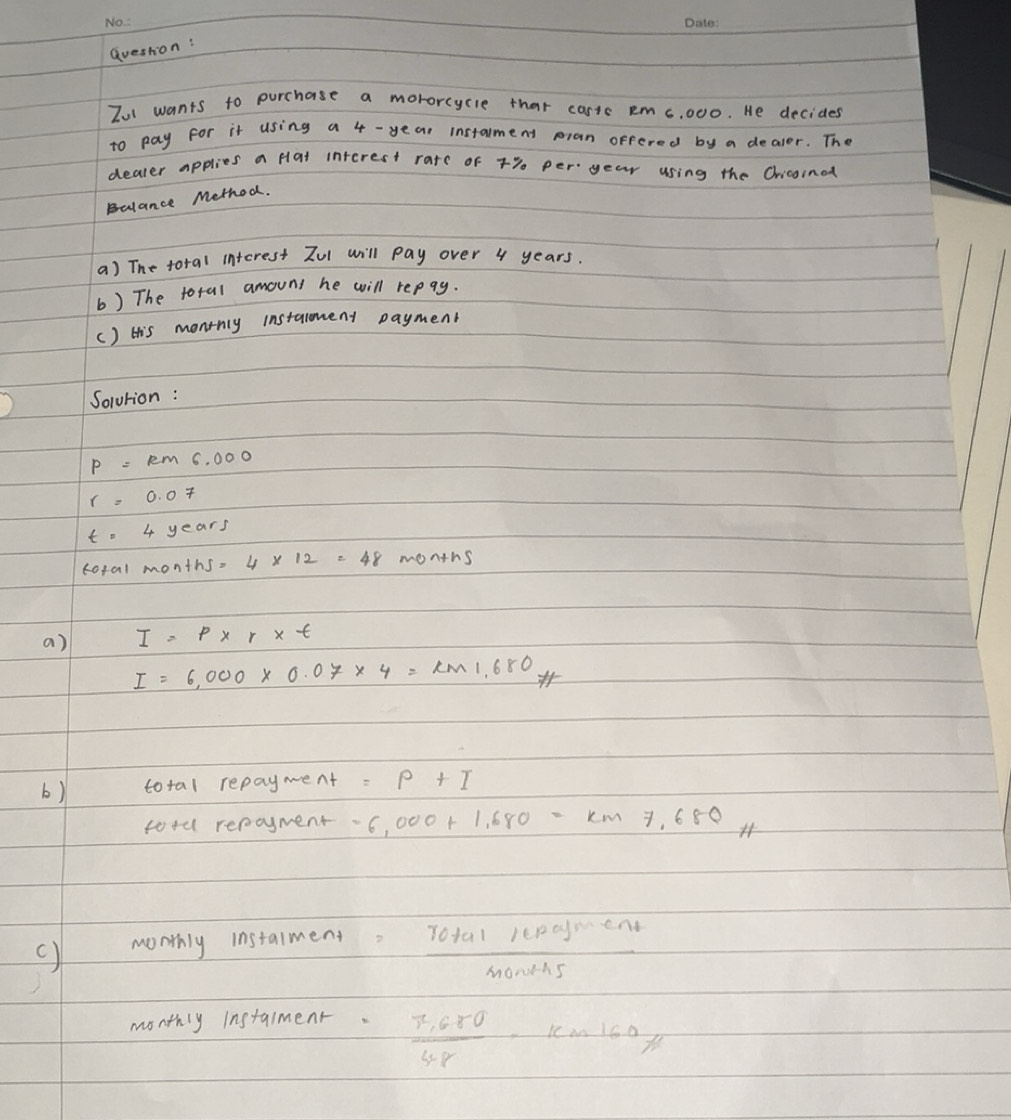 No.: Date:
Question :
Zul wants to purchase a motorcycle that costs RM 6.000. He decides
to pay for it using a 4-year instalment plan offered by a dealer. The
dealer applies a flat interest rate of 7% per. year using the Original
Balance Method.
a) The total interest Zul will pay over 4 years.
b) The total amount he will repay.
c) His monthly instalment payment
Solution :
P = RM 6.000
r = 0.07
t = 4 years
total months = 4 x 12 = 48 months
a) I = P x r x t
I = 6,000 x 0.07 x 4 = RM 1,680 #
b) total repayment = P + I
total repayment = 6,000 + 1,680 = RM 7,680 #
c) monthly instalment = Total repayment
months
monthly instalment = 7,680
48 = RM 160 #